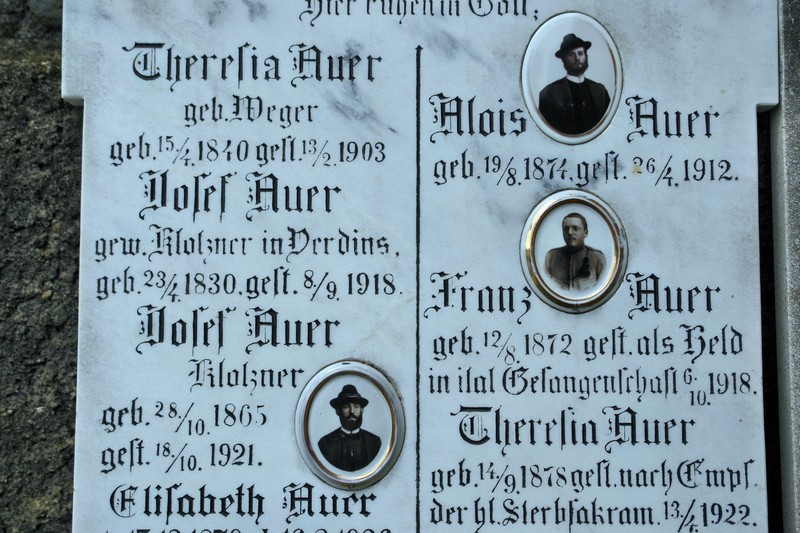 Hier ruhen in Gott;
Theresia Auer
geb. Weger
geb. 15/4. 1840 gest. 13/2. 1903
Josef Auer
gew. Klotzner in Verdins,
geb. 23/4. 1830. gest. 8/9. 1918.
Josef Auer
Klotzner
geb. 28/10. 1865
gest. 18/10. 1921.
Elisabeth Auer
Alois Auer
geb. 19/8. 1874. gest. 26/4. 1912.
Franz Auer
geb. 12/8. 1872 gest. als Held
in ital Gefangenschaft 6./10. 1918.
Theresia Auer
geb. 14/9. 1878 gest. nach Empf.
der hl. Sterbsakram. 13/4. 1922.